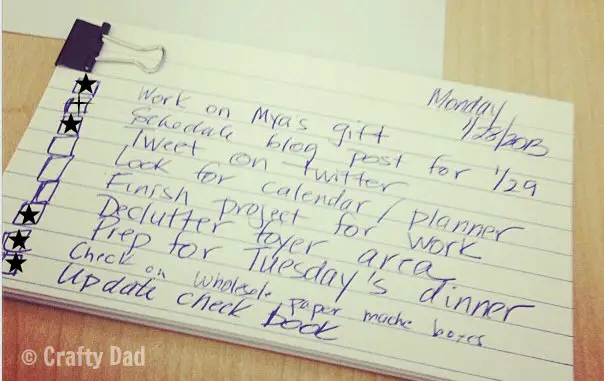 Monday
1/28/2013
Work on Mya's gift
Schedule blog post for 1/29
Tweet on twitter
Look for calendar / planner
Finish project for work
Declutter foyer area
Prep for Tuesday's dinner
Check on wholesale paper mache boxes
Update check book
© Crafty Dad